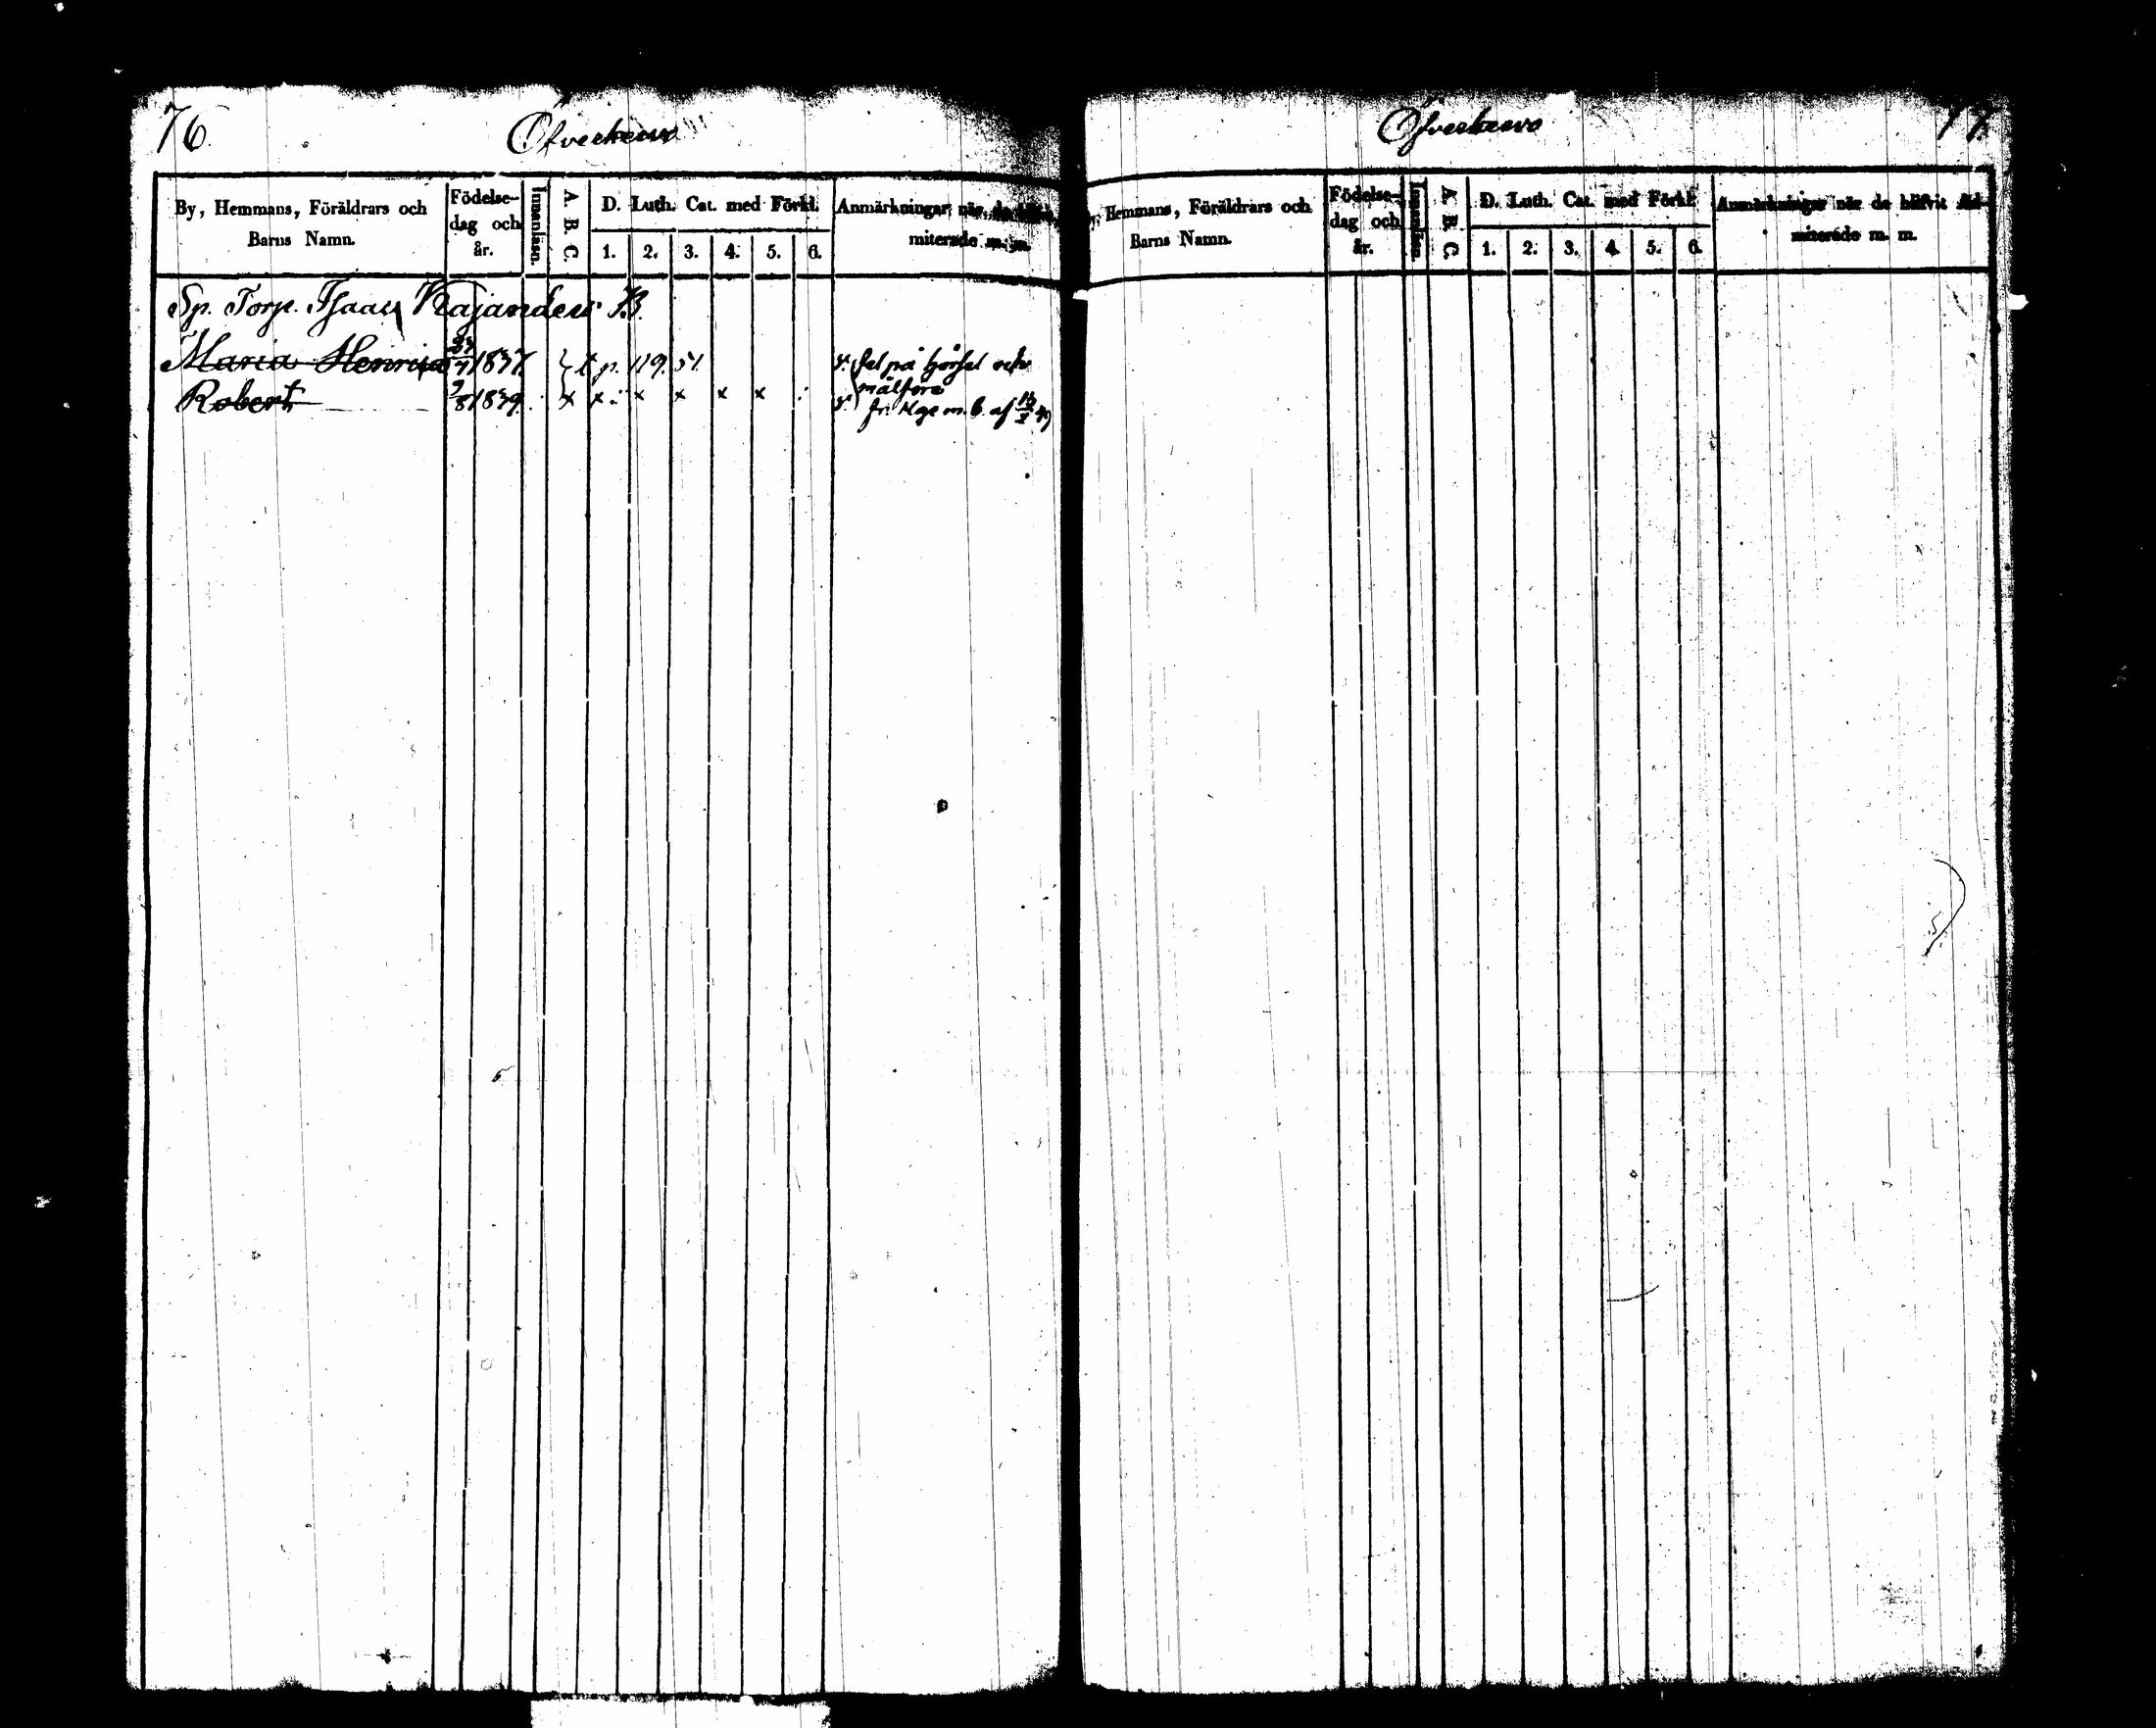 76.
Öfverkervo
By, Hemmans, Föräldrars och
Barns Namn.
Födelse-
dag och
år.
Innanläsn.
A. B. C.
D. Luth. Cat. med Förkl.
1. 2. 3. 4. 5. 6.
Anmärkningar när de
miterade m. m.
Sp. Torp. Isaac Kajanders B.
Maria Henrica 1837. t p. 119. 51. v. fel på hörsel och
målföre
Robert 9/8 1839. x x x x x x v. fr. m. b. af
Öfverkervo
77.
Hemmans, Föräldrars och
Barns Namn.
Födelse-
dag och
år.
Innanläsn.
A. B. C.
D. Luth. Cat. med Förkl.
1. 2. 3. 4. 5. 6.
Anmärkningar när de blifvit Ad-
miterade m. m.